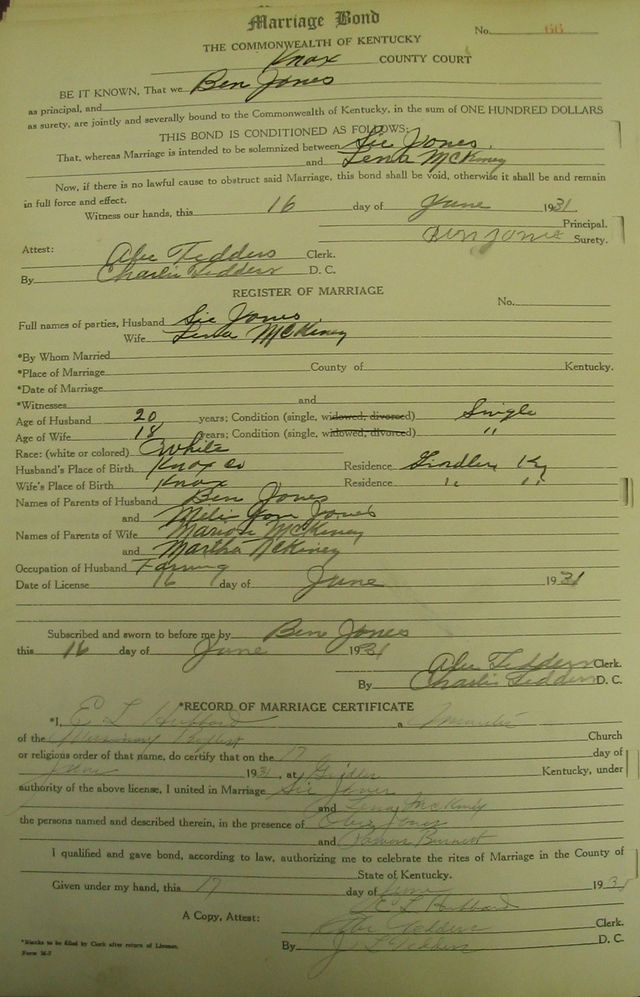 Marriage Bond
No. 66
THE COMMONWEALTH OF KENTUCKY
Knox COUNTY COURT
BE IT KNOWN, That we Ben Jones
as principal, and
as surety, are jointly and severally bound to the Commonwealth of Kentucky, in the sum of ONE HUNDRED DOLLARS
THIS BOND IS CONDITIONED AS FOLLOWS:
That, whereas Marriage is intended to be solemnized between Sie Jones
and Lena McKiney
Now, if there is no lawful cause to obstruct said Marriage, this bond shall be void, otherwise it shall be and remain
in full force and effect.
Witness our hands, this 16 day of June 1931
Principal.
Ben Jones Surety.
Attest:
Abe Tedders Clerk.
By Charlie Tedders D. C.
REGISTER OF MARRIAGE
No.
Full names of parties, Husband Sie Jones
Wife Lena McKiney
*By Whom Married
*Place of Marriage County of Kentucky.
*Date of Marriage
*Witnesses and
Age of Husband 20 years; Condition (single, widowed, divorced) Single
Age of Wife 18 years; Condition (single, widowed, divorced) "
Race: (white or colored) White
Husband's Place of Birth Knox co Residence Ky
Wife's Place of Birth Knox Residence " "
Names of Parents of Husband Ben Jones
and Jones
Names of Parents of Wife Marion McKiney
and Martha McKiney
Occupation of Husband Farming
Date of License 16 day of June 1931
Subscribed and sworn to before me by Ben Jones
this 16 day of June 1931
Abe Tedders Clerk.
By Charlie Tedders D. C.
*RECORD OF MARRIAGE CERTIFICATE
*I, E L Hubbard a Minister
of the Missionary Baptist Church
or religious order of that name, do certify that on the 17 day of
June 1931, at Kentucky, under
authority of the above license, I united in Marriage Sie Jones
and Lena McKiney
the persons named and described therein, in the presence of Jones
and Burnett
I qualified and gave bond, according to law, authorizing me to celebrate the rites of Marriage in the County of
State of Kentucky.
Given under my hand, this 17 day of June 1931
E L Hubbard
A Copy, Attest: Abe Tedders Clerk.
By D. C.
*Blanks to be filled by Clerk after return of License.